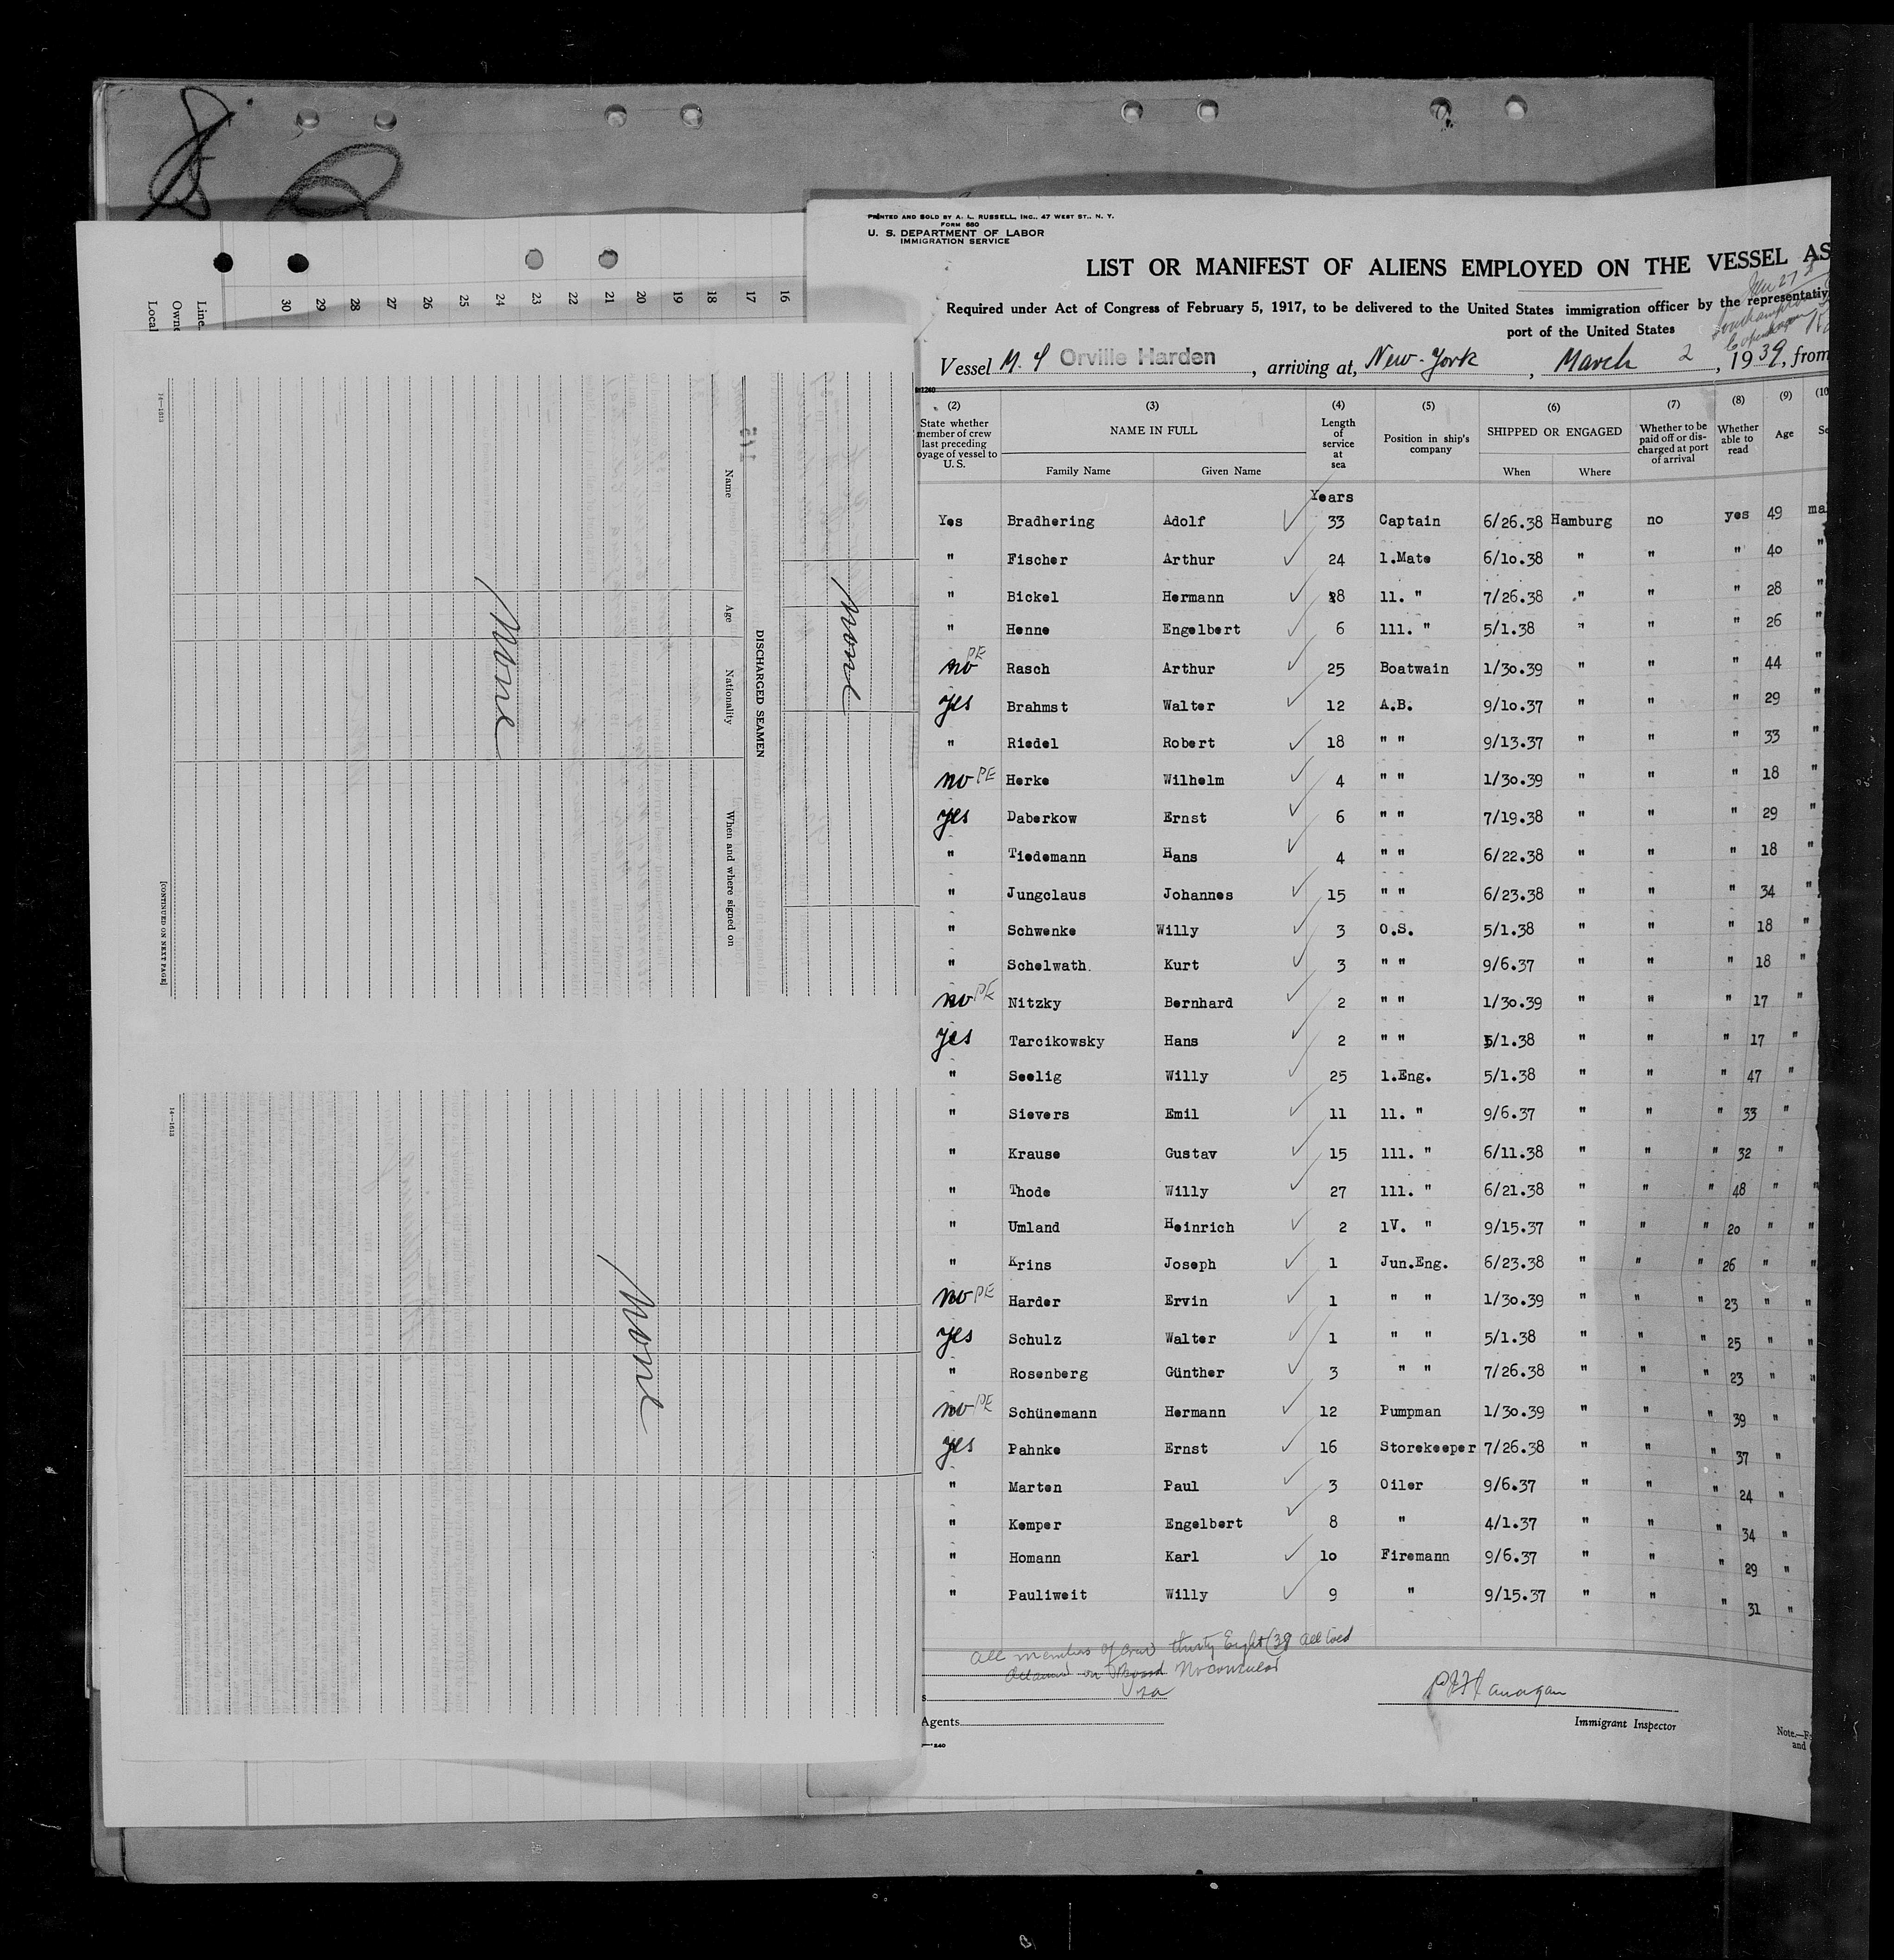 PRINTED AND SOLD BY A. L. RUSSELL, INC., 47 WEST ST., N. Y.
FORM 680
U. S. DEPARTMENT OF LABOR
IMMIGRATION SERVICE
LIST OR MANIFEST OF ALIENS EMPLOYED ON THE VESSEL AS
Required under Act of Congress of February 5, 1917, to be delivered to the United States immigration officer by the representativ
port of the United States
Vessel M. S Orville Harden, arriving at, New-York, March 2, 1939, from
(2) (3) (4) (5) (6) (7) (8) (9) (10
State whether member of crew last preceding oyage of vessel to U.S. NAME IN FULL Length of service at sea Position in ship's company SHIPPED OR ENGAGED Whether to be paid off or discharged at port of arrival Whether able to read Age Se
Family Name Given Name When Where
Years
Yes Bradhering Adolf 33 Captain 6/26.38 Hamburg no yes 49 ma
" Fischer Arthur 24 1.Mate 6/10.38 " " " 40 "
" Bickel Hermann 8 11. " 7/26.38 " " " 28 "
" Henne Engelbert 6 111. " 5/1.38 " " " 26 "
no PE Rasch Arthur 25 Boatwain 1/30.39 " " " 44 "
yes Brahmst Walter 12 A.B. 9/10.37 " " " 29 "
" Riedel Robert 18 " " 9/13.37 " " " 33 "
no PE Herke Wilhelm 4 " " 1/30.39 " " " 18 "
yes Daberkow Ernst 6 " " 7/19.38 " " " 29 "
" Tiedemann Hans 4 " " 6/22.38 " " " 18 "
" Jungclaus Johannes 15 " " 6/23.38 " " " 34 "
" Schwenke Willy 3 O.S. 5/1.38 " " " 18 "
" Schelwath. Kurt 3 " " 9/6.37 " " " 18 "
no PE Nitzky Bernhard 2 " " 1/30.39 " " " 17 "
yes Tarcikowsky Hans 2 " " 5/1.38 " " " 17 "
" Seelig Willy 25 1.Eng. 5/1.38 " " " 47 "
" Sievers Emil 11 11. " 9/6.37 " " " 33 "
" Krause Gustav 15 111. " 6/11.38 " " " 32 "
" Thode Willy 27 111. " 6/21.38 " " " 48 " "
" Umland Heinrich 2 1V. " 9/15.37 " " " 20 " "
" Krins Joseph 1 Jun.Eng. 6/23.38 " " " 26 " "
no PE Harder Ervin 1 " " 1/30.39 " " " 23 " "
yes Schulz Walter 1 " " 5/1.38 " " " 25 " "
" Rosenberg Günther 3 " " 7/26.38 " " " 23 " "
no PE Schünemann Hermann 12 Pumpman 1/30.39 " " " 39 " "
yes Pahnke Ernst 16 Storekeeper 7/26.38 " " " 37 "
" Marten Paul 3 Oiler 9/6.37 " " " 24 "
" Kemper Engelbert 8 " 4/1.37 " " " 34 "
" Homann Karl 10 Firemann 9/6.37 " " " 29 "
" Pauliweit Willy 9 " 9/15.37 " " " 31 "
All members of crew thirty Eight (38
on Board No consular
Visa
Agents
Immigrant Inspector
Note.—F
and
Line
Owne
Local
30 29 28 27 26 25 24 23 22 21 20 19 18 17 16
None
DISCHARGED SEAMEN
Name Age Nationality When and where signed on
None
[CONTINUED ON NEXT PAGE]
14—1613
None
14—1613